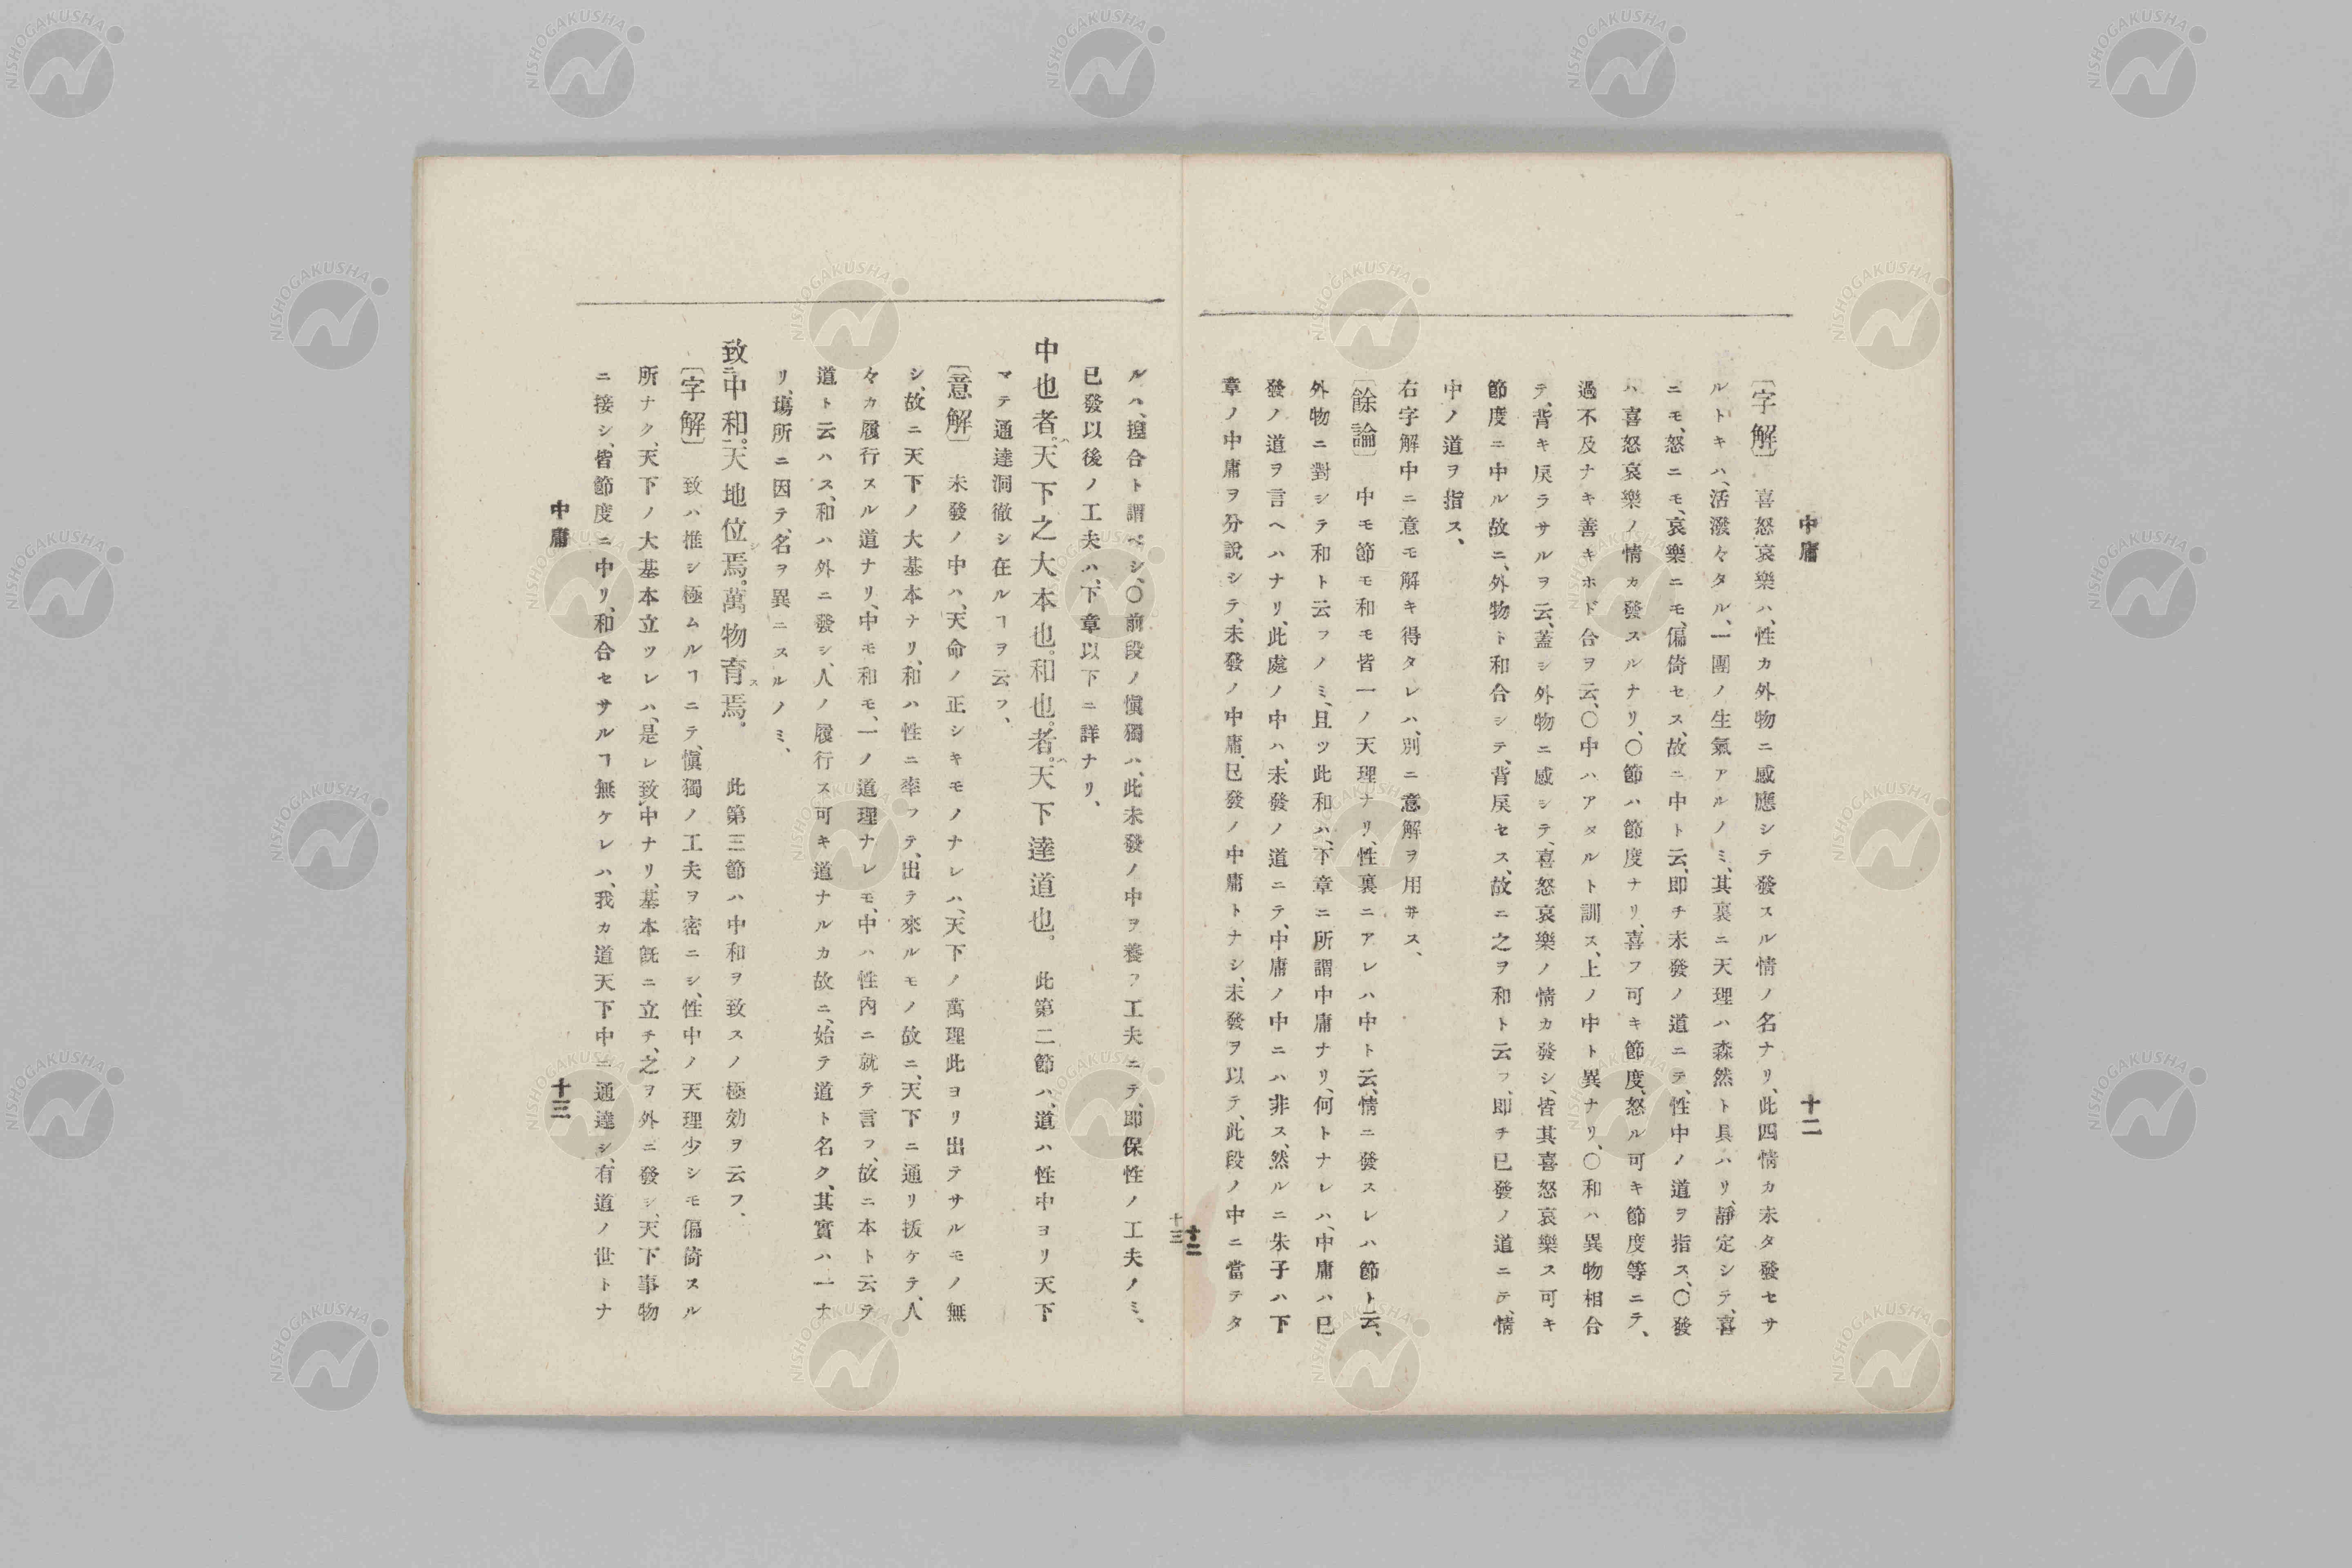 中庸 十二
〔字解〕 喜怒哀樂ハ、性カ外物ニ感應シテ發スル情ノ名ナリ、此四情カ未タ發セサ
ルトキハ、活潑々タル、一團ノ生氣アルノミ、其裏ニ天理ハ森然ト具ハリ、靜定シテ、喜
ニモ、怒ニモ、哀樂ニモ、偏倚セス、故ニ中ト云、即チ未發ノ道ニテ、性中ノ道ヲ指ス、〇發
ハ喜怒哀樂ノ情カ發スルナリ、〇節ハ節度ナリ、喜フ可キ節度、怒ル可キ節度等ニテ、
過不及ナキ善キホド合ヲ云、〇中ハアタルト訓ス、上ノ中ト異ナリ、〇和ハ異物相合
テ、背キ戻ラサルヲ云、蓋シ外物ニ感シテ、喜怒哀樂ノ情カ發シ、皆其喜怒哀樂ス可キ
節度ニ中ル故ニ、外物ト和合シテ、背戻セス、故ニ之ヲ和ト云フ、即チ已發ノ道ニテ、情
中ノ道ヲ指ス、
右字解中ニ意モ解キ得タレハ、別ニ意解ヲ用ヰス、
〔餘論〕 中モ節モ和モ皆一ノ天理ナリ、性裏ニアレハ中ト云、情ニ發スレハ節ト云、
外物ニ對シテ和ト云フノミ、且ツ此和ハ、下章ニ所謂中庸ナリ、何トナレハ、中庸ハ已
發ノ道ヲ言ヘハナリ、此處ノ中ハ、未發ノ道ニテ、中庸ノ中ニハ非ス、然ルニ朱子ハ下
章ノ中庸ヲ分説シテ、未發ノ中庸、已發ノ中庸トナシ、未發ヲ以テ、此段ノ中ニ當テタ
十二
十三
ルハ、撞合ト謂ベシ、〇前段ノ愼獨ハ、此未發ノ中ヲ養フ工夫ニテ、即保性ノ工夫ノミ、
已發以後ノ工夫ハ、下章以下ニ詳ナリ、
中也者。ハ天下之大本也。和也。者。ハ天下達道也。 此第二節ハ、道ハ性中ヨリ天下
マテ通達洞徹シ在ルヿヲ云フ、
〔意解〕 未發ノ中ハ、天命ノ正シキモノナレハ、天下ノ萬理此ヨリ出テサルモノ無
シ、故ニ天下ノ大基本ナリ、和ハ性ニ率フテ、出テ來ルモノ故ニ、天下ニ通リ拔ケテ、人
々カ履行スル道ナリ、中モ和モ、一ノ道理ナレモ、中ハ性内ニ就テ言フ、故ニ本ト云ヲ
道ト云ハス、和ハ外ニ發シ、人ノ履行ス可キ道ナルカ故ニ、始テ道ト名ク、其實ハ一ナ
リ、塲所ニ因テ、名ヲ異ニスルノミ、
致ニ中和。天地位シ焉。萬物育ス焉。 此第三節ハ中和ヲ致スノ極効ヲ云フ、
〔字解〕 致ハ推シ極ムルヿニテ、愼獨ノ工夫ヲ密ニシ、性中ノ天理少シモ偏倚スル
所ナク、天下ノ大基本立ツレハ、是レ致中ナリ、基本既ニ立チ、之ヲ外ニ發シ、天下事物
ニ接シ、皆節度ニ中リ、和合セサルヿ無ケレハ、我カ道天下中ニ通達シ、有道ノ世トナ
中庸 十三